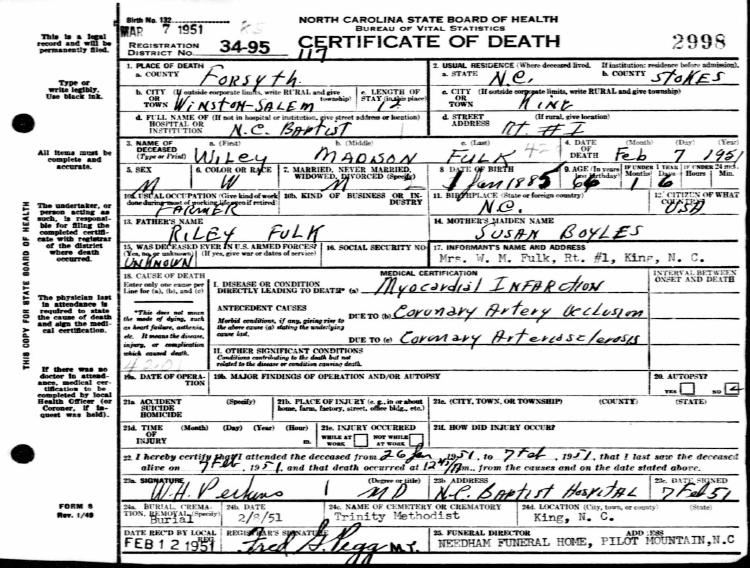 Birth No. 132
NORTH CAROLINA STATE BOARD OF HEALTH
MAR 7 1951
BUREAU OF VITAL STATISTICS
REGISTRATION DISTRICT No. 34-95 117
CERTIFICATE OF DEATH 2998
This is a legal record and will be permanently filed.
Type or write legibly. Use black ink.
All items must be complete and accurate.
The undertaker, or person acting as such, is responsible for filing the completed certificate with registrar of the district where death occurred.
The physician last in attendance is required to state the cause of death and sign the medical certification.
If there was no doctor in attendance, medical certification to be completed by local Health Officer (or Coroner, if inquest was held).
THIS COPY FOR STATE BOARD OF HEALTH
FORM 8
Rev. 1/49
1. PLACE OF DEATH
a. COUNTY Forsyth
2. USUAL RESIDENCE (Where deceased lived. If institution: residence before admission).
a. STATE N.C. b. COUNTY STOKES
b. CITY OR TOWN (If outside corporate limits, write RURAL and give township) WINSTON-SALEM
c. LENGTH OF STAY (in this place) 12
c. CITY OR TOWN (If outside corporate limits, write RURAL and give township) KING
d. FULL NAME OF HOSPITAL OR INSTITUTION (If not in hospital or institution, give street address or location) N.C. Baptist
d. STREET ADDRESS (If rural, give location) Rt. #1
3. NAME OF DECEASED (Type or Print) a. (First) WILEY b. (Middle) MADISON c. (Last) FULK
4. DATE OF DEATH (Month) (Day) (Year) Feb 7 1951
5. SEX M
6. COLOR OR RACE W
7. MARRIED, NEVER MARRIED, WIDOWED, DIVORCED (Specify) M
8 DATE OF BIRTH 1 Jan 1885
9. AGE (In years last birthday) 66 IF UNDER 1 YEAR Months 1 Days 6 IF UNDER 24 HRS. Hours Min.
10a. USUAL OCCUPATION (Give kind of work done during most of working life, even if retired) FARMER
10b. KIND OF BUSINESS OR INDUSTRY
11. BIRTHPLACE (State or foreign country) N.C.
12. CITIZEN OF WHAT COUNTRY? USA
13. FATHER'S NAME
RILEY FULK
14. MOTHER'S MAIDEN NAME
SUSAN BOYLES
15. WAS DECEASED EVER IN U.S. ARMED FORCES? (Yes, no, or unknown) (If yes, give war or dates of service) UNKNOWN
16. SOCIAL SECURITY NO.
17. INFORMANT'S NAME AND ADDRESS
Mrs. W. M. Fulk, Rt. #1, King, N. C.
18. CAUSE OF DEATH
Enter only one cause per line for (a), (b), and (c)
*This does not mean the mode of dying, such as heart failure, asthenia, etc. It means the disease, injury, or complication which caused death.
MEDICAL CERTIFICATION
INTERVAL BETWEEN ONSET AND DEATH
I. DISEASE OR CONDITION DIRECTLY LEADING TO DEATH* (a) Myocardial INFARCTION
ANTECEDENT CAUSES
Morbid conditions, if any, giving rise to the above cause (a) stating the underlying cause last.
DUE TO (b) Coronary Artery Occlusion
DUE TO (c) Coronary Arteriosclerosis
II. OTHER SIGNIFICANT CONDITIONS
Conditions contributing to the death but not related to the disease or condition causing death.
19a. DATE OF OPERATION
19b. MAJOR FINDINGS OF OPERATION AND/OR AUTOPSY
20. AUTOPSY? YES NO
21a. ACCIDENT SUICIDE HOMICIDE (Specify)
21b. PLACE OF INJURY (e.g., in or about home, farm, factory, street, office bldg., etc.)
21c. (CITY, TOWN, OR TOWNSHIP) (COUNTY) (STATE)
21d. TIME OF INJURY (Month) (Day) (Year) (Hour) m.
21e. INJURY OCCURRED WHILE AT WORK NOT WHILE AT WORK
21f. HOW DID INJURY OCCUR?
22. I hereby certify that I attended the deceased from 26 Jan, 1951, to 7 Feb, 1951, that I last saw the deceased
alive on 7 Feb, 1951, and that death occurred at 12 m., from the causes and on the date stated above.
23a. SIGNATURE (Degree or title) W.H. Perkins MD
23b. ADDRESS N.C. Baptist Hospital
23c. DATE SIGNED 7 Feb 51
24a. BURIAL, CREMATION, REMOVAL (Specify) Burial
24b. DATE 2/8/51
24c. NAME OF CEMETERY OR CREMATORY Trinity Methodist
24d. LOCATION (City, town, or county) (State) King, N. C.
DATE REC'D BY LOCAL REG. FEB 12 1951
REGISTRAR'S SIGNATURE Fred G. Pegg M.D.
25. FUNERAL DIRECTOR ADDRESS
NEEDHAM FUNERAL HOME, PILOT MOUNTAIN, N.C